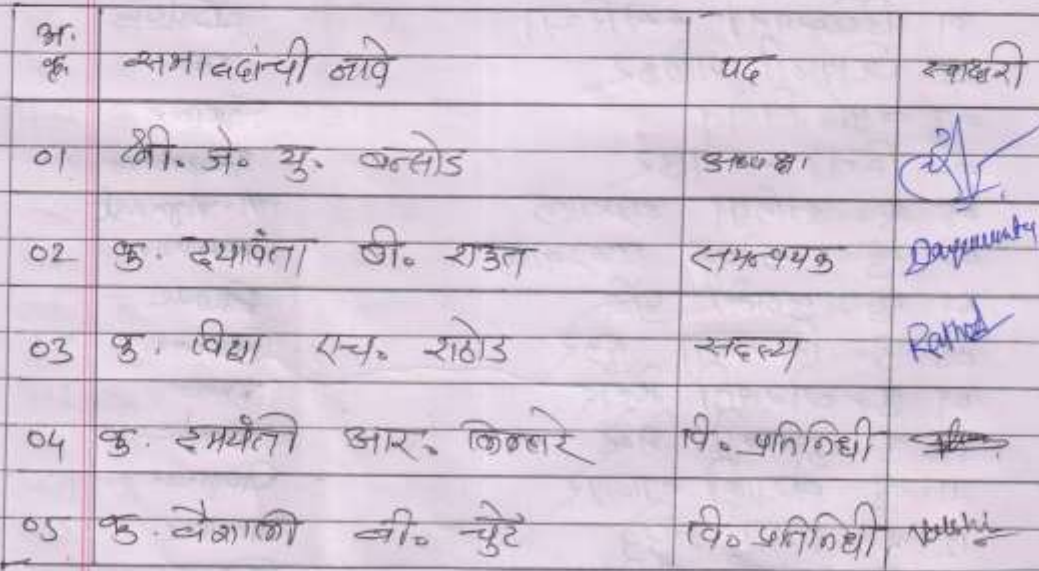 अ.
क्र. सभासदांची नावे पद स्वाक्षरी
01 श्री. जे. यु. बन्सोड अध्यक्ष
02 कु. दयावंता बी. राऊत समन्वयक
03 कु. विद्या एच. राठोड सदस्य Rathod
04 कु. दमयंती आर. लिल्हारे वि. प्रतिनिधी
05 कु. वैशाली बी. चुटे वि. प्रतिनिधी